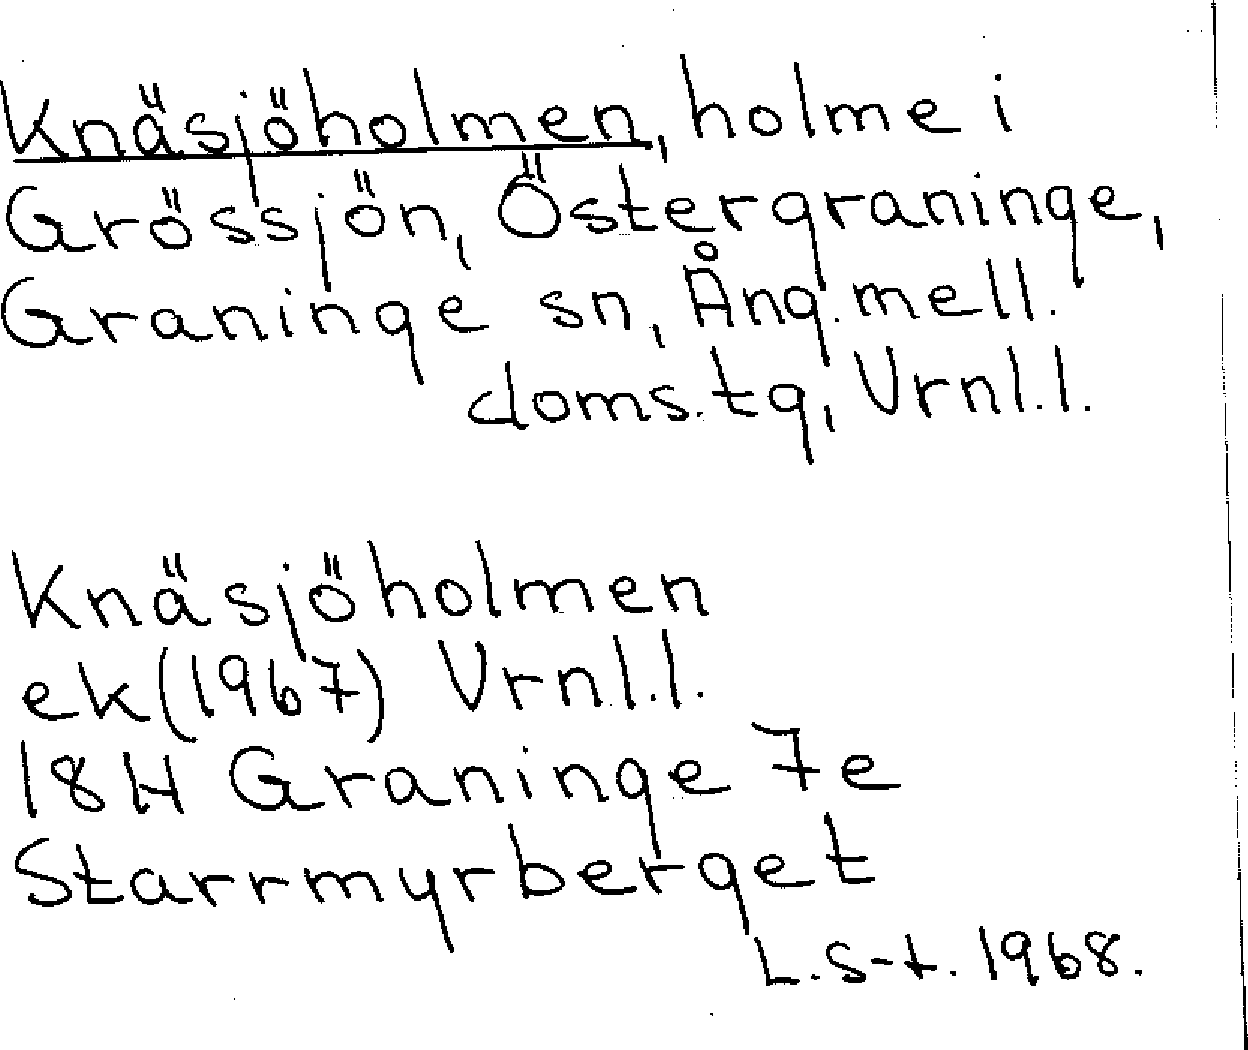 Knäsjöholmen, holme i
Grössjön, Östergraninge,
Graninge sn, Ång. mell.
doms. tg, Vrnl.l.
Knäsjöholmen
ek (1967) Vrnl.l.
18H Graninge 7e
Starrmyrberget
L.S-t. 1968.